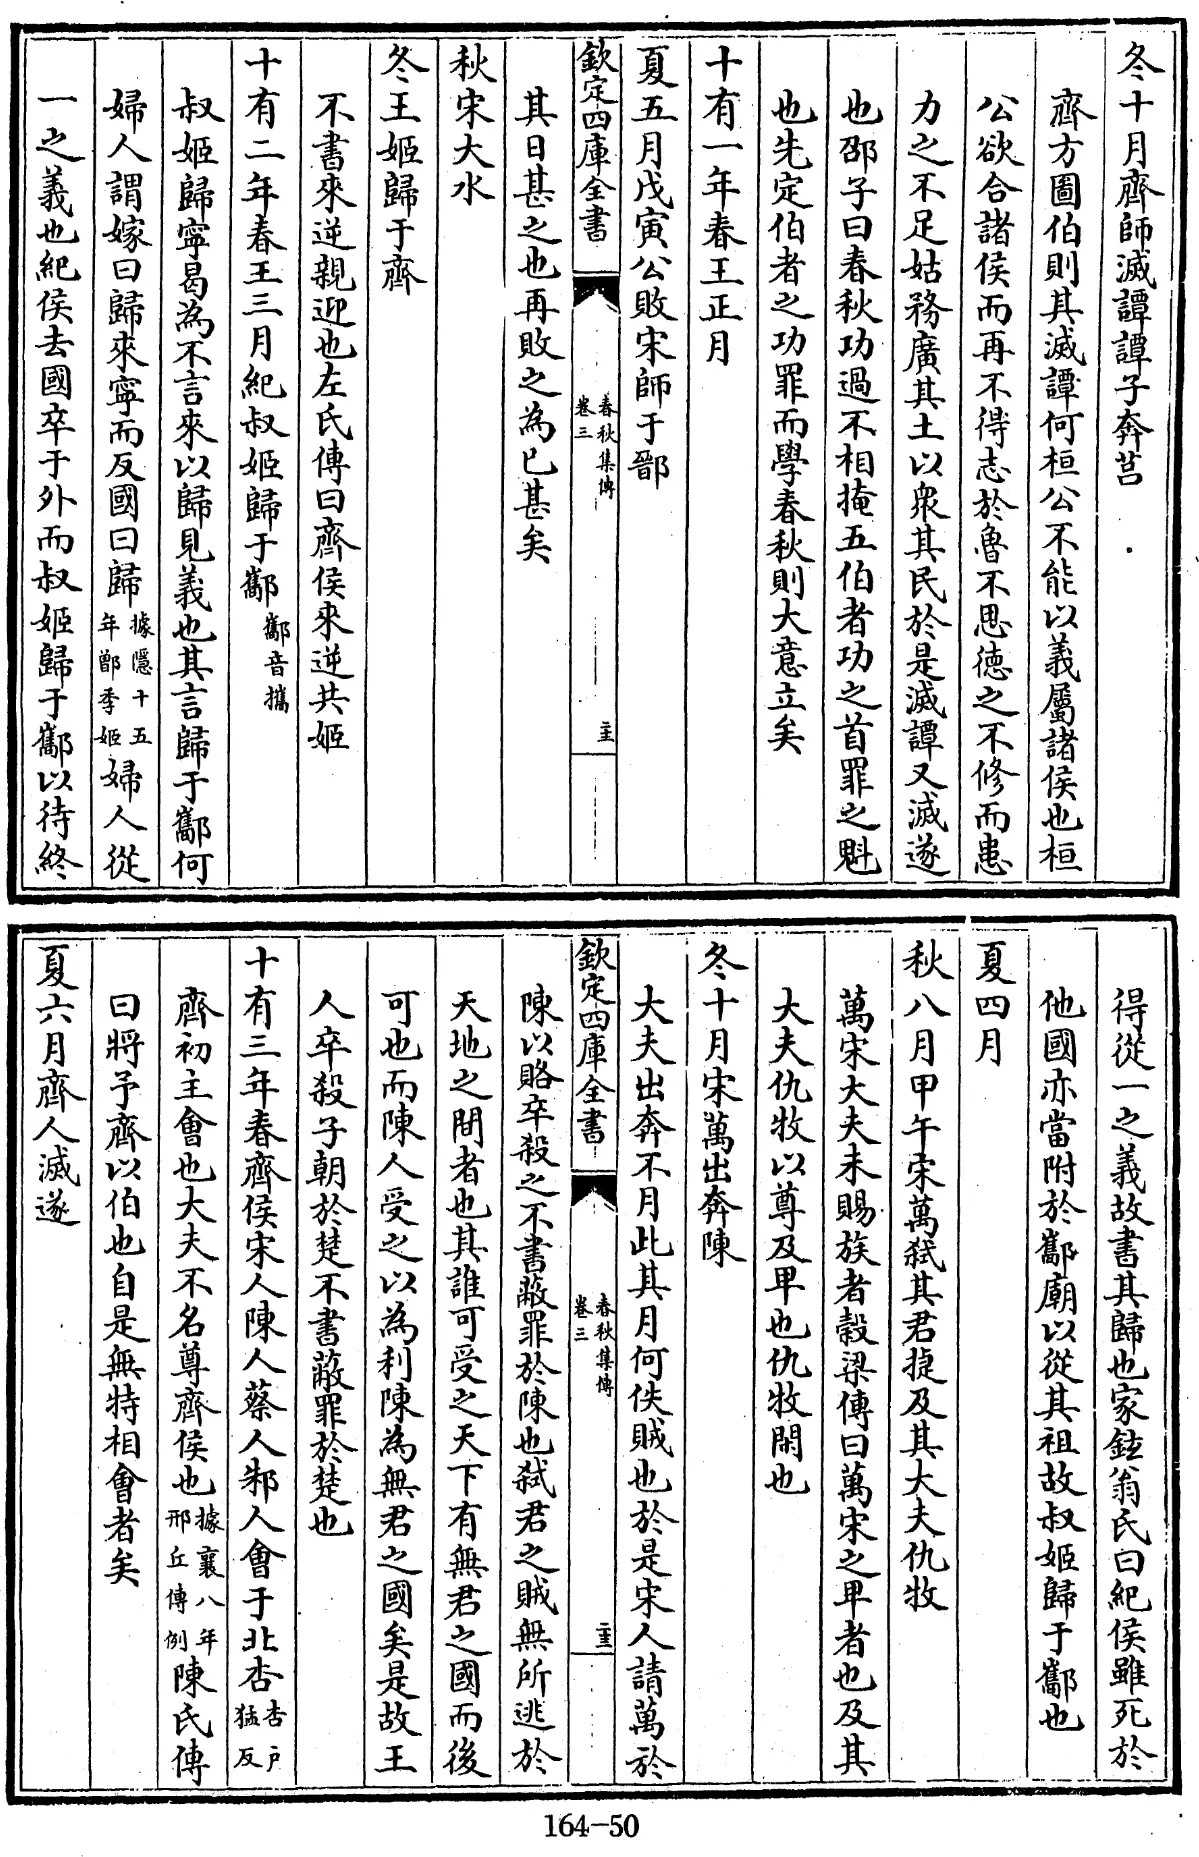 冬十月齊師滅譚譚子奔莒
齊方圖伯則其滅譚何桓公不能以義屬諸侯也桓
公欲合諸侯而再不得志於魯不思德之不修而患
力之不足姑務廣其土以衆其民於是滅譚又滅遂
也邵子曰春秋功過不相掩五伯者功之首罪之魁
也先定伯者之功罪而學春秋則大意立矣
十有一年春王正月
夏五月戊寅公敗宋師于鄑
欽定四庫全書
春秋集傳
卷三
其日甚之也再敗之為已甚矣
秋宋大水
冬王姬歸于齊
不書來逆親迎也左氏傳曰齊侯來逆共姬
十有二年春王三月紀叔姬歸于酅酅音攜
叔姬歸寧曷為不言來以歸見義也其言歸于酅何
婦人謂嫁曰歸來寧而反國曰歸據隱十五年鄫季姬婦人從
一之義也紀侯去國卒于外而叔姬歸于酅以待終
得從一之義故書其歸也家鉉翁氏曰紀侯雖死於
他國亦當附於酅廟以從其祖故叔姬歸于酅也
夏四月
秋八月甲午宋萬弑其君捷及其大夫仇牧
萬宋大夫未賜族者榖梁傳曰萬宋之卑者也及其
大夫仇牧以尊及卑也仇牧閑也
冬十月宋萬出奔陳
大夫出奔不月此其月何佚賊也於是宋人請萬於
欽定四庫全書
春秋集傳
卷三
陳以賂卒殺之不書蔽罪於陳也弑君之賊無所逃於
天地之間者也其誰可受之天下有無君之國而後
可也而陳人受之以為利陳為無君之國矣是故王
人卒殺子朝於楚不書蔽罪於楚也
十有三年春齊侯宋人陳人蔡人邾人會于北杏杏户猛反
齊初主會也大夫不名尊齊侯也據襄八年邢丘傳例陳氏傳
曰將予齊以伯也自是無特相會者矣
夏六月齊人滅遂
164-50